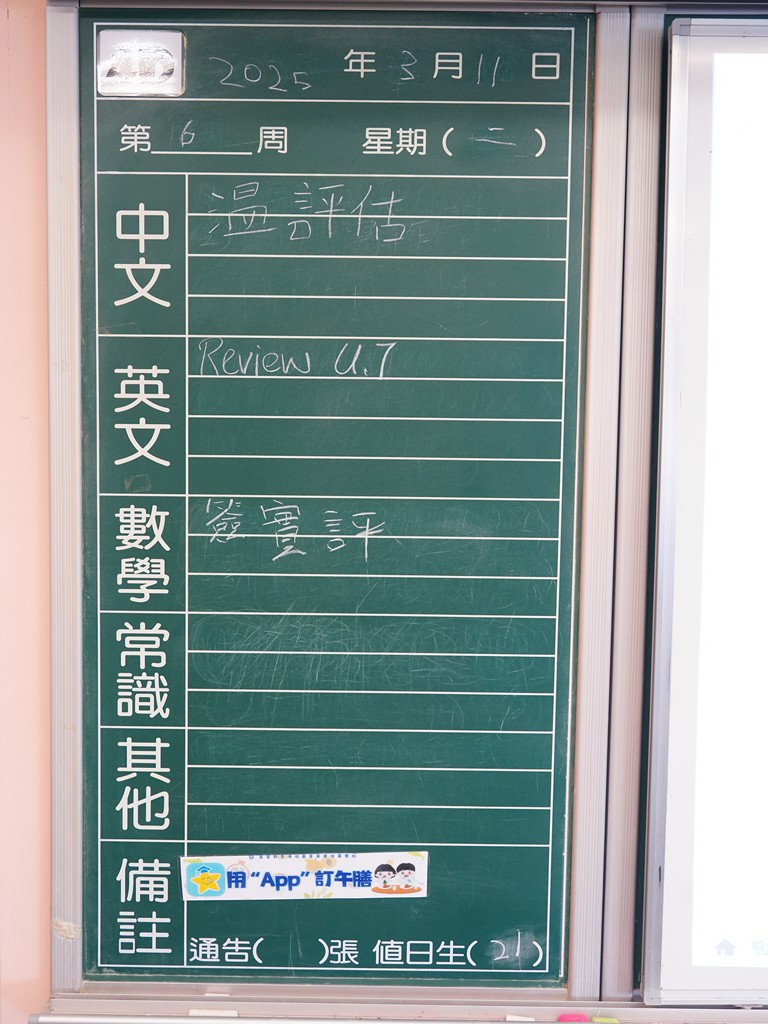 2025 年 3 月 11 日
第 16 周 星期 ( 二 )
中文
溫評估
英文
Review U.7
數學
簽實評
常識
其他
備註
用 “App” 訂午膳
通告( 1 )張 值日生( 21 )